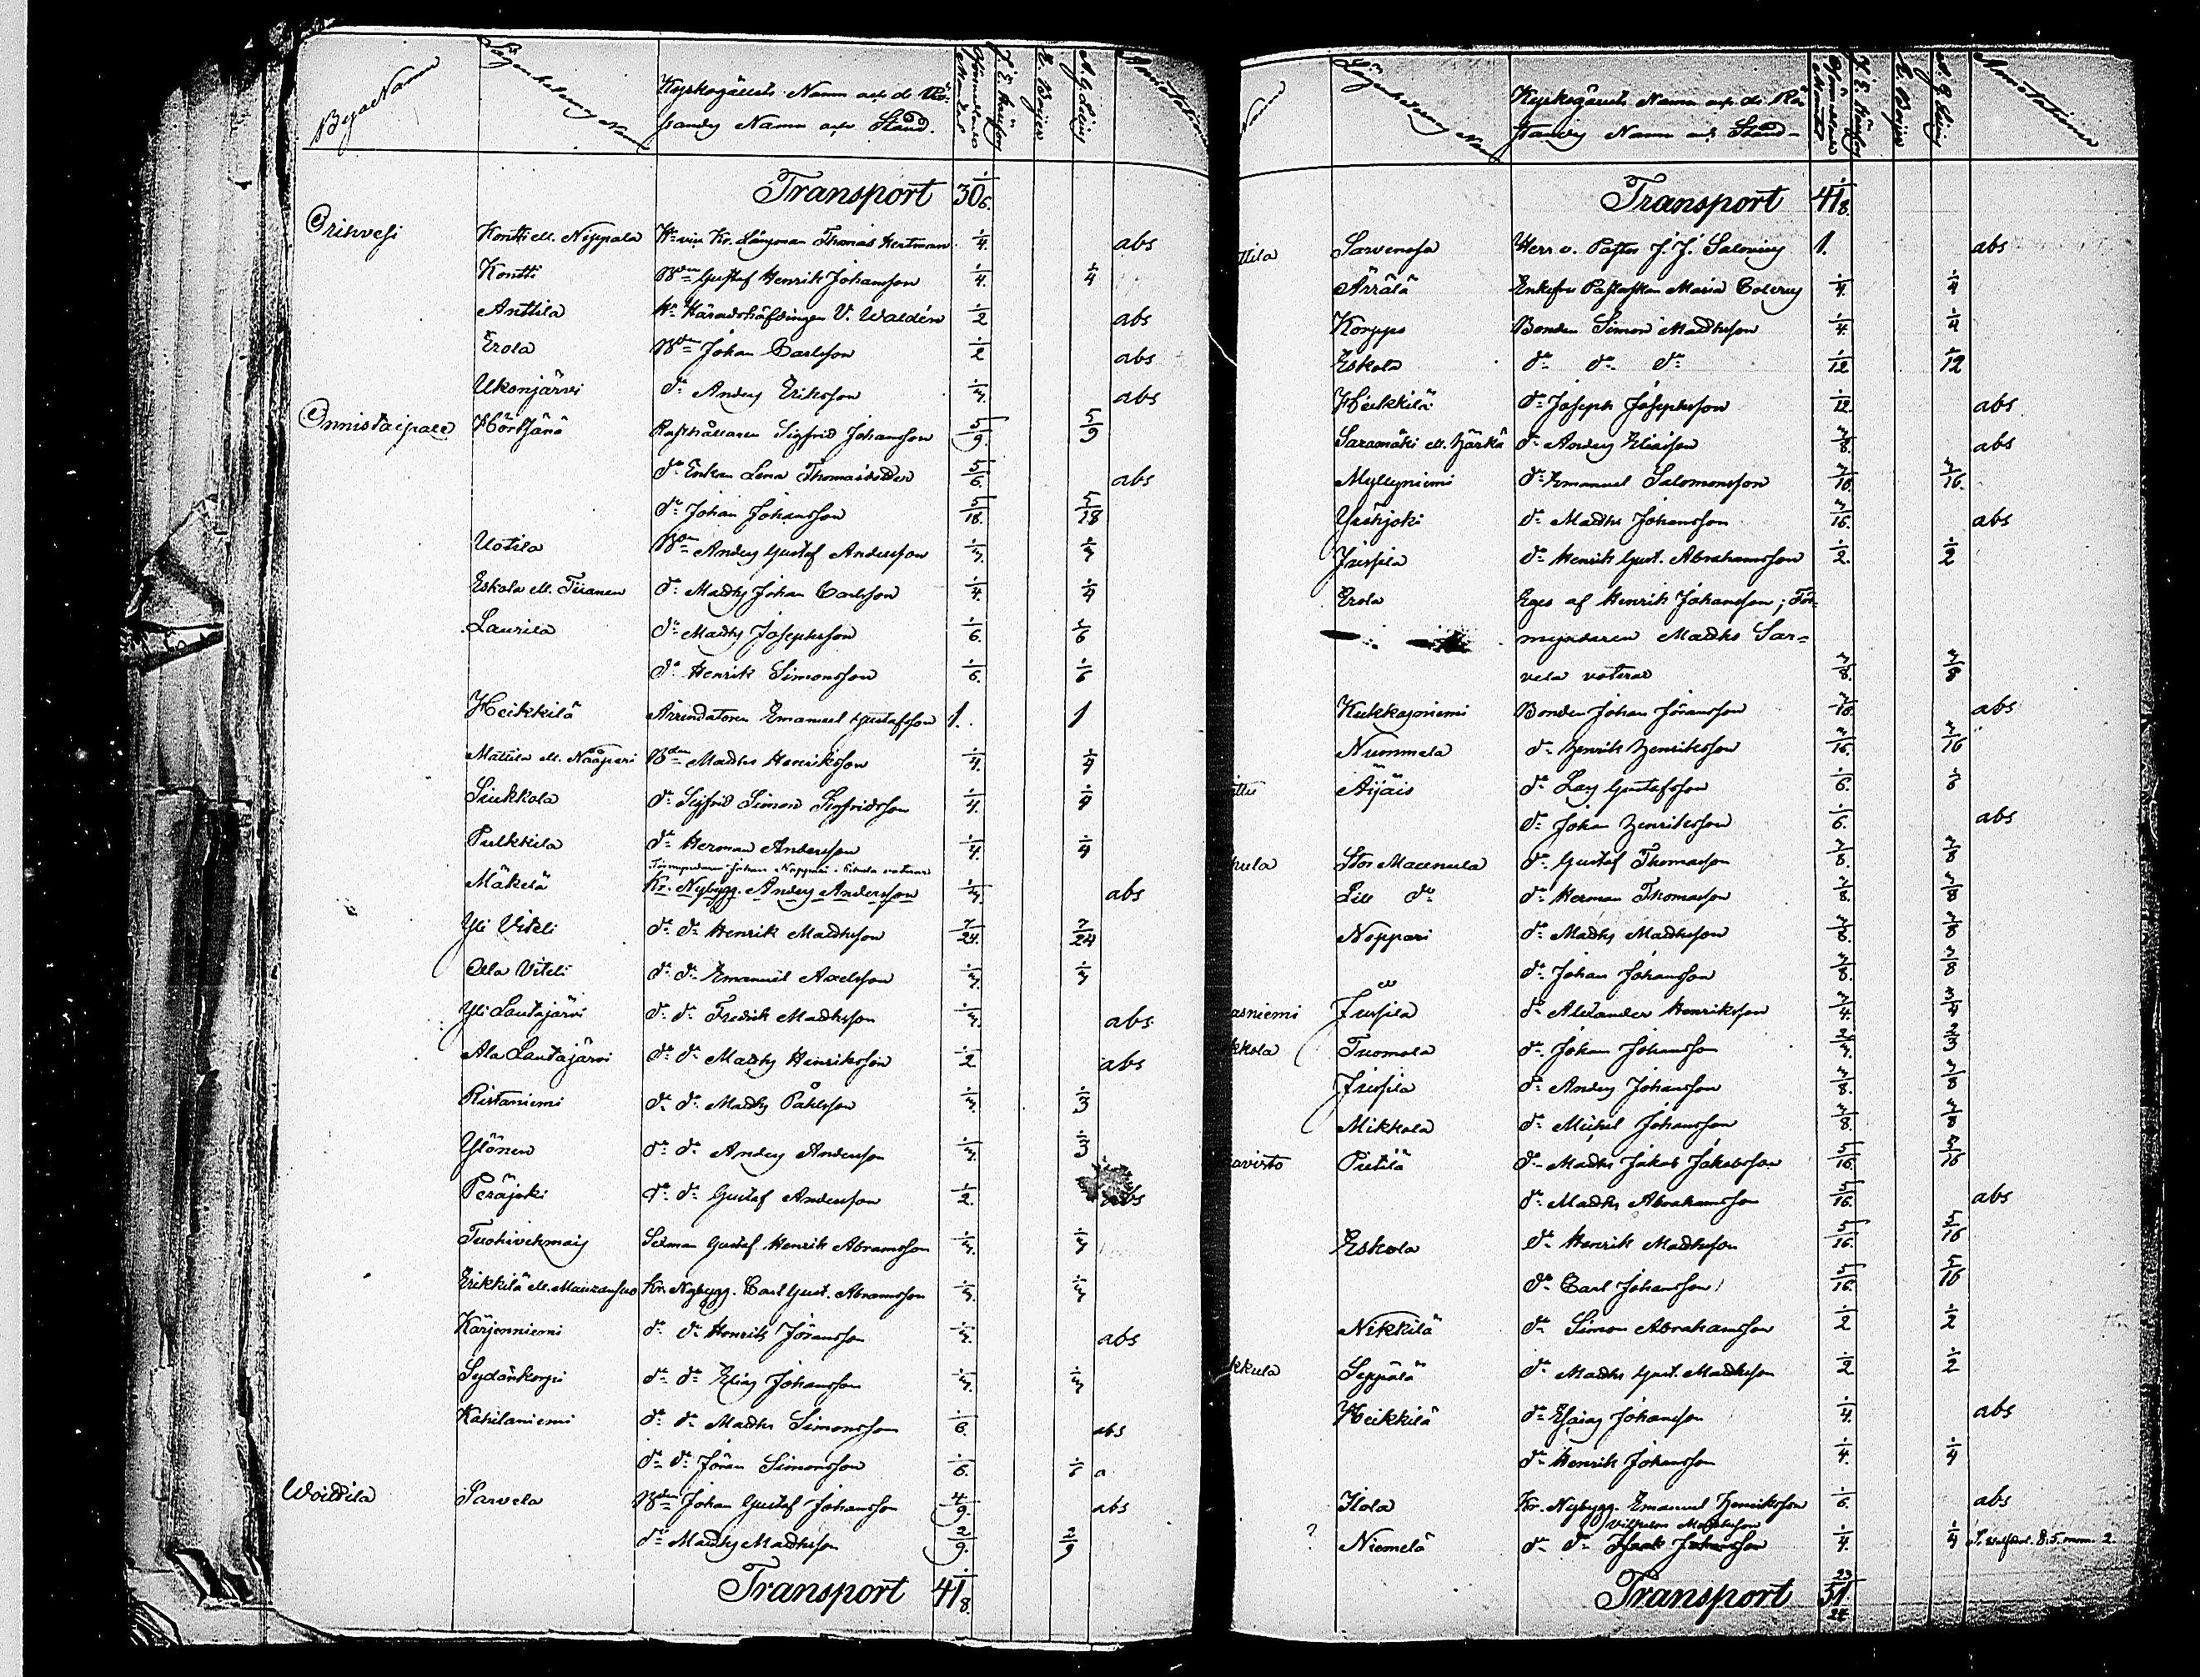 Byars Namn
Lägenheternas Namn
Kyrkogällets Namn och de Rö-
standes Namn och Stånd.
A. G. Leinig
E. Boijer
Annotationer
Transport 30 1/6.
Orihvesi Kontti ell. Nippala Hr vice Kr. Länsman Thomas Hertman 1/4. abs
Kontti Bdn Gustaf Henrik Johansson 1/4. 1/4
Anttila Hr Häradshöfdingen V. Waldén 1/2 abs
Erola Bdn Johan Carlsson 1/2 abs
Ukonjärvi do Anders Eriksson 1/3. abs
Onnistaipale Hörtsänä Rusthållaren Sigfrid Johansson 5/9. 5/9
do Enkan Lena Thomasdotter 5/6. abs
do Johan Johansson 5/18. 5/18
Uotila Bdn Anders Gustaf Andersson 1/3. 1/3
Eskola ell. Tiranen do Matths Johan Carlsson 1/4. 1/4
Laurila do Matths Josephsson 1/6. 1/6
do Henrik Simonsson 1/6. 1/6
Heikkilä Arrendatoren Emanuel Gustafsson 1. 1
Mattila ell. Nääperi Bdn Matths Henriksson 1/4. 1/4
Siukkola do Sigfrid Simon Sigfridsson 1/4. 1/4
Pulkkila do Herman Andersson 1/4. 1/4
Mäkelä Kr. Nybygg. Anders Andersson 1/3. abs
Yli Viteli do do Henrik Matthsson 7/24. 7/24
Alla Viteli do do Emanuel Axelsson 1/3. 1/3
Yli Lautajärvi do do Fredrik Matthsson 1/3. abs
Ala Lautajärvi do do Matths Henriksson 1/2 abs
Ristaniemi do do Matths Påhlsson 1/3. 1/3
Ylönen do do Anders Andersson 1/3. 1/3
Peräjoki do do Gustaf Andersson 1/2. abs
Tuohivehmais Gustaf Henrik Abramsson 1/3. 1/3
Erikkilä ell. Kr. Nybygg. Carl Gust. Abramsson 1/3. 1/3
Kärjenniemi do do Henrik Jöransson 1/3. abs
Sydänkorpi do do Elias Johansson 1/3. 1/3
Kahilaniemi do do Matths Simonsson 1/6. abs
do do Jöran Simonsson 1/6. 1/6 a
Woittila Sarvela Bdn Johan Gustaf Johansson 4/9. abs
do Matths Matthsson 2/9. 2/9
Transport 41 1/8.
Lägenheternas Namn
Kyrkogällets Namn och de Rö-
standes Namn och Stånd
E. Boijer
A. G. Leinig
Annotationer
Transport 41 1/8.
ttila Sarvensa Herr v. Pastor J. J. Salovius 1. abs
Ärrälä Enkefru Pastorskan Maria Colerus 1/4. 1/4
Korppo Bonden Simon Matthsson 1/4. 1/4
Eskola do do do 1/12 1/12
Heikkilä do Joseph Josephsson 1/12. abs
Saramäki ell. Härkä do Anders Eliasson 3/8. abs
Myllyniemi do Emanuel Salomonsson 3/16. 3/16.
Yrttijoki do Matths Johansson 3/16. abs
Jussila do Henrik Gust. Abrahamsson 1/2. 1/2
Erola Eges af Henrik Johansson; För-
myndaren Matths Sar-
vela voterar 3/8. 3/8
Kukkaroniemi Bonden Johan Jöransson 3/16. abs
Nummela do Henrik Henriksson 3/16. 3/16
ttis Äijäis do Lars Gustafsson 1/6. 1/6
do Johan Henriksson 1/6. abs
kula Stor Maunula do Gustaf Thomasson 3/8. 3/8
Lill do do Herman Thomasson 3/8. 3/8
Noppari do Matths Matthsson 3/8. 3/8
do Johan Johansson 3/8. 3/8
asniemi Jussila do Alexander Henriksson 3/4. 3/4
kkola Tuomola do Johan Johansson 2/3. 2/3
Jussila do Anders Johansson 3/8. 3/8
Mikkola do Michel Johansson 3/8. 3/8
avisto Pietilä do Matths Jakob Jakobsson 5/16. 5/16
do Matths Abrahamsson 5/16. abs
Eskola do Henrik Matthsson 5/16. 5/16
do Carl Johansson 5/16. 5/16
Nikkilä do Simon Abrahamsson 1/2 1/2
kkula Seppälä do Matths Gust. Matthsson 1/2 1/2
Heikkilä do Esaias Johansson 1/4. abs
do Henrik Johansson 1/4. 1/4
Ilola Kr. Nybygg. Emanuel Henriksson 1/6. abs
Vilhelm Matthsson
? Niemelä do do Isaak Johansson 1/4. 1/4
Transport 51 23/24